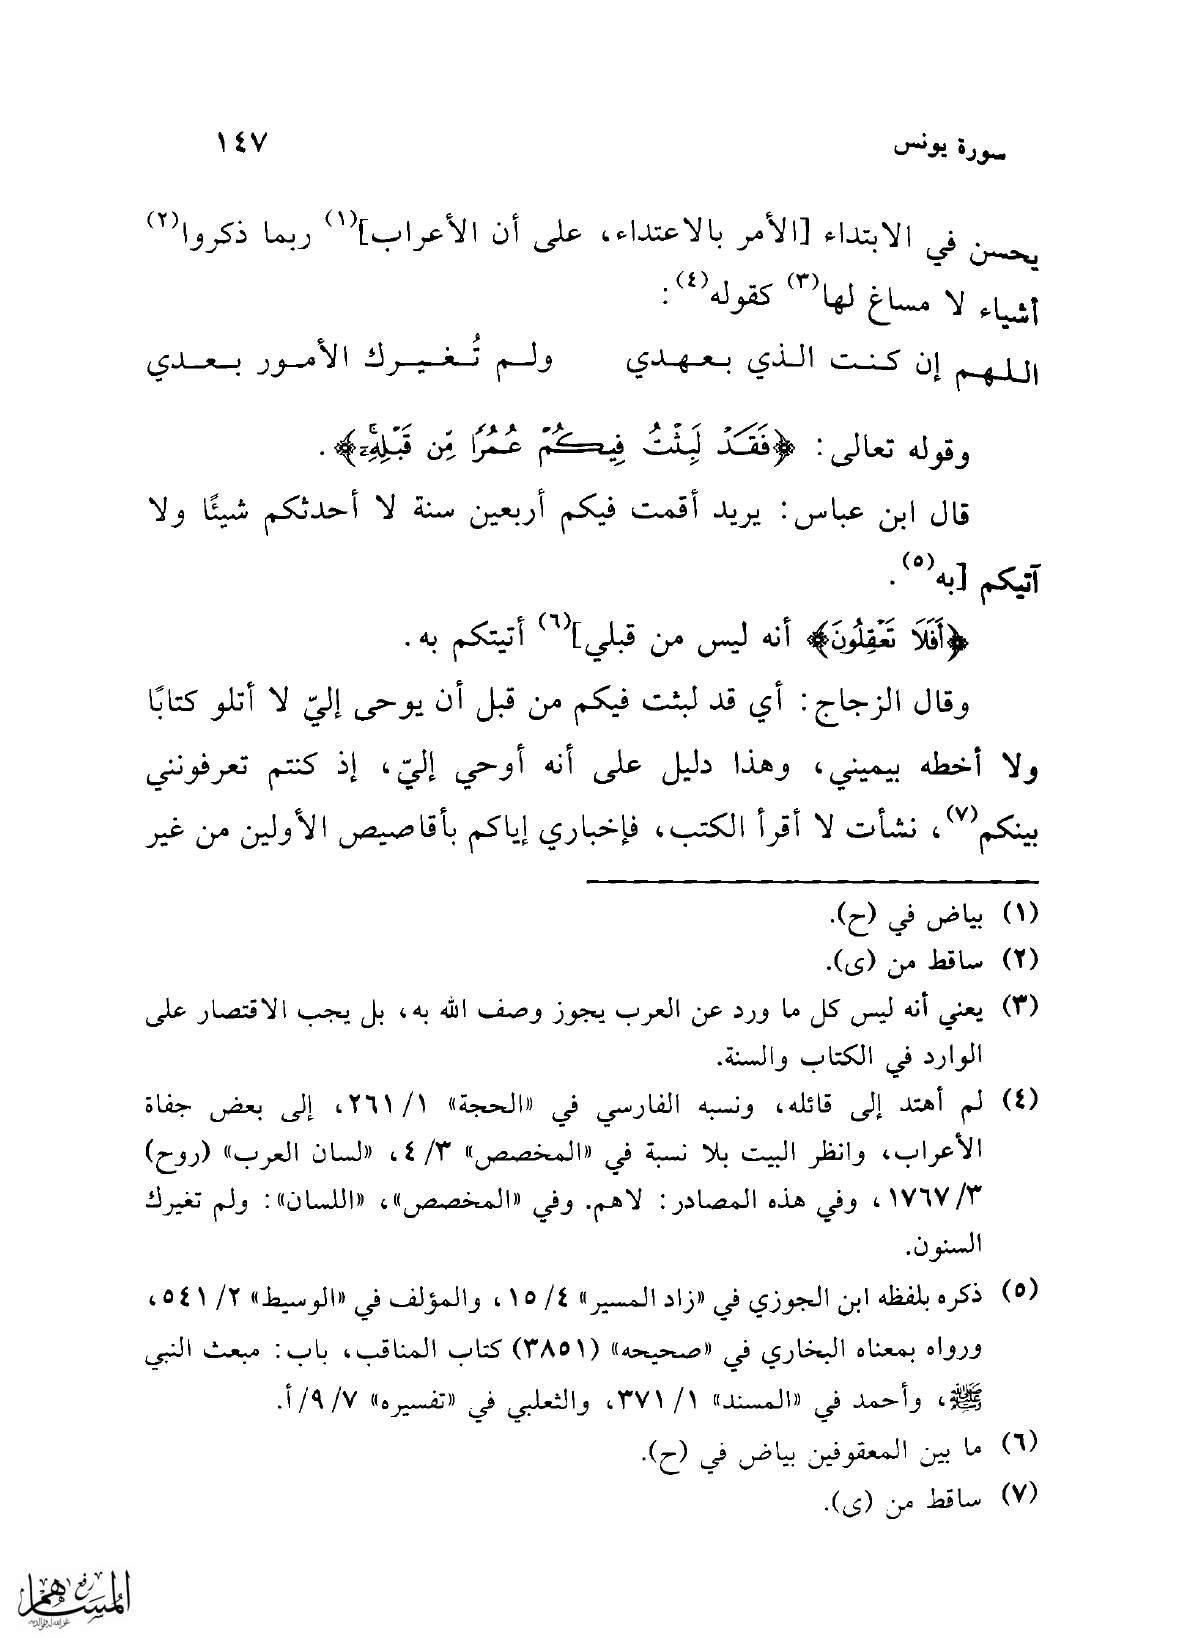 سورة يونس
١٤٧
يحسن في الابتداء [الأمر بالاعتداء، على أن الأعراب](١) ربما ذكروا(٢)
أشياء لا مساغ لها(٣) كقوله(٤):
اللهم إن كنت الذي بعهدي ولم تُغيرك الأمور بعدي
وقوله تعالى: ﴿فَقَدْ لَبِثْتُ فِيكُمْ عُمُرًا مِّن قَبْلِهِۦٓ﴾.
قال ابن عباس: يريد أقمت فيكم أربعين سنة لا أحدثكم شيئًا ولا
آتيكم [به(٥).
﴿أَفَلَا تَعْقِلُونَ﴾ أنه ليس من قبلي](٦) أتيتكم به.
وقال الزجاج: أي قد لبثت فيكم من قبل أن يوحى إليّ لا أتلو كتابًا
ولا أخطه بيميني، وهذا دليل على أنه أوحي إليّ، إذ كنتم تعرفونني
بينكم(٧)، نشأت لا أقرأ الكتب، فإخباري إياكم بأقاصيص الأولين من غير
(١) بياض في (ح).
(٢) ساقط من (ى).
(٣) يعني أنه ليس كل ما ورد عن العرب يجوز وصف الله به، بل يجب الاقتصار على
الوارد في الكتاب والسنة.
(٤) لم أهتد إلى قائله، ونسبه الفارسي في «الحجة» ١/ ٢٦١، إلى بعض جفاة
الأعراب، وانظر البيت بلا نسبة في «المخصص» ٣/ ٤، «لسان العرب» (روح)
٣/ ١٧٦٧، وفي هذه المصادر: لاهم. وفي «المخصص»، «اللسان»: ولم تغيرك
السنون.
(٥) ذكره بلفظه ابن الجوزي في «زاد المسير» ٤/ ١٥، والمؤلف في «الوسيط» ٢/ ٥٤١،
ورواه بمعناه البخاري في «صحيحه» (٣٨٥١) كتاب المناقب، باب: مبعث النبي
ﷺ، وأحمد في «المسند» ١/ ٣٧١، والثعلبي في «تفسيره» ٧/ ٩/ أ.
(٦) ما بين المعقوفين بياض في (ح).
(٧) ساقط من (ى).
رفع
المساهم